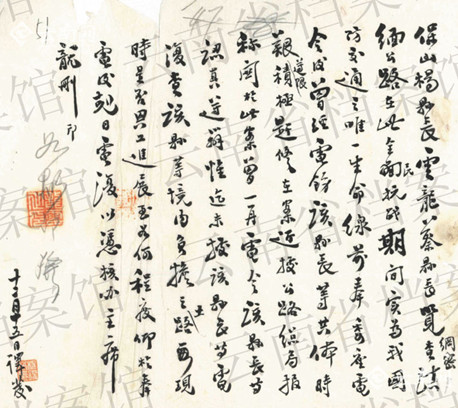 保山楊縣長雲龍蔡縣長覽綱密查滇
緬公路在此全民抗战期間實為我國
防交通之唯一生命線前奉委座電
令後曾經電飭該縣長等共体時
艱遵限積極趕修在案近据公路總局报
称関於此案曾一再電令該縣長等
認真遵辦惟迄未据該縣長等電
復查該縣等境内負擔之土路面現
時是否畢工進展至如何程度仰於奉
電後剋日電復以憑核办主席
龍刪印
十二月十五日譯發
云南省档案馆